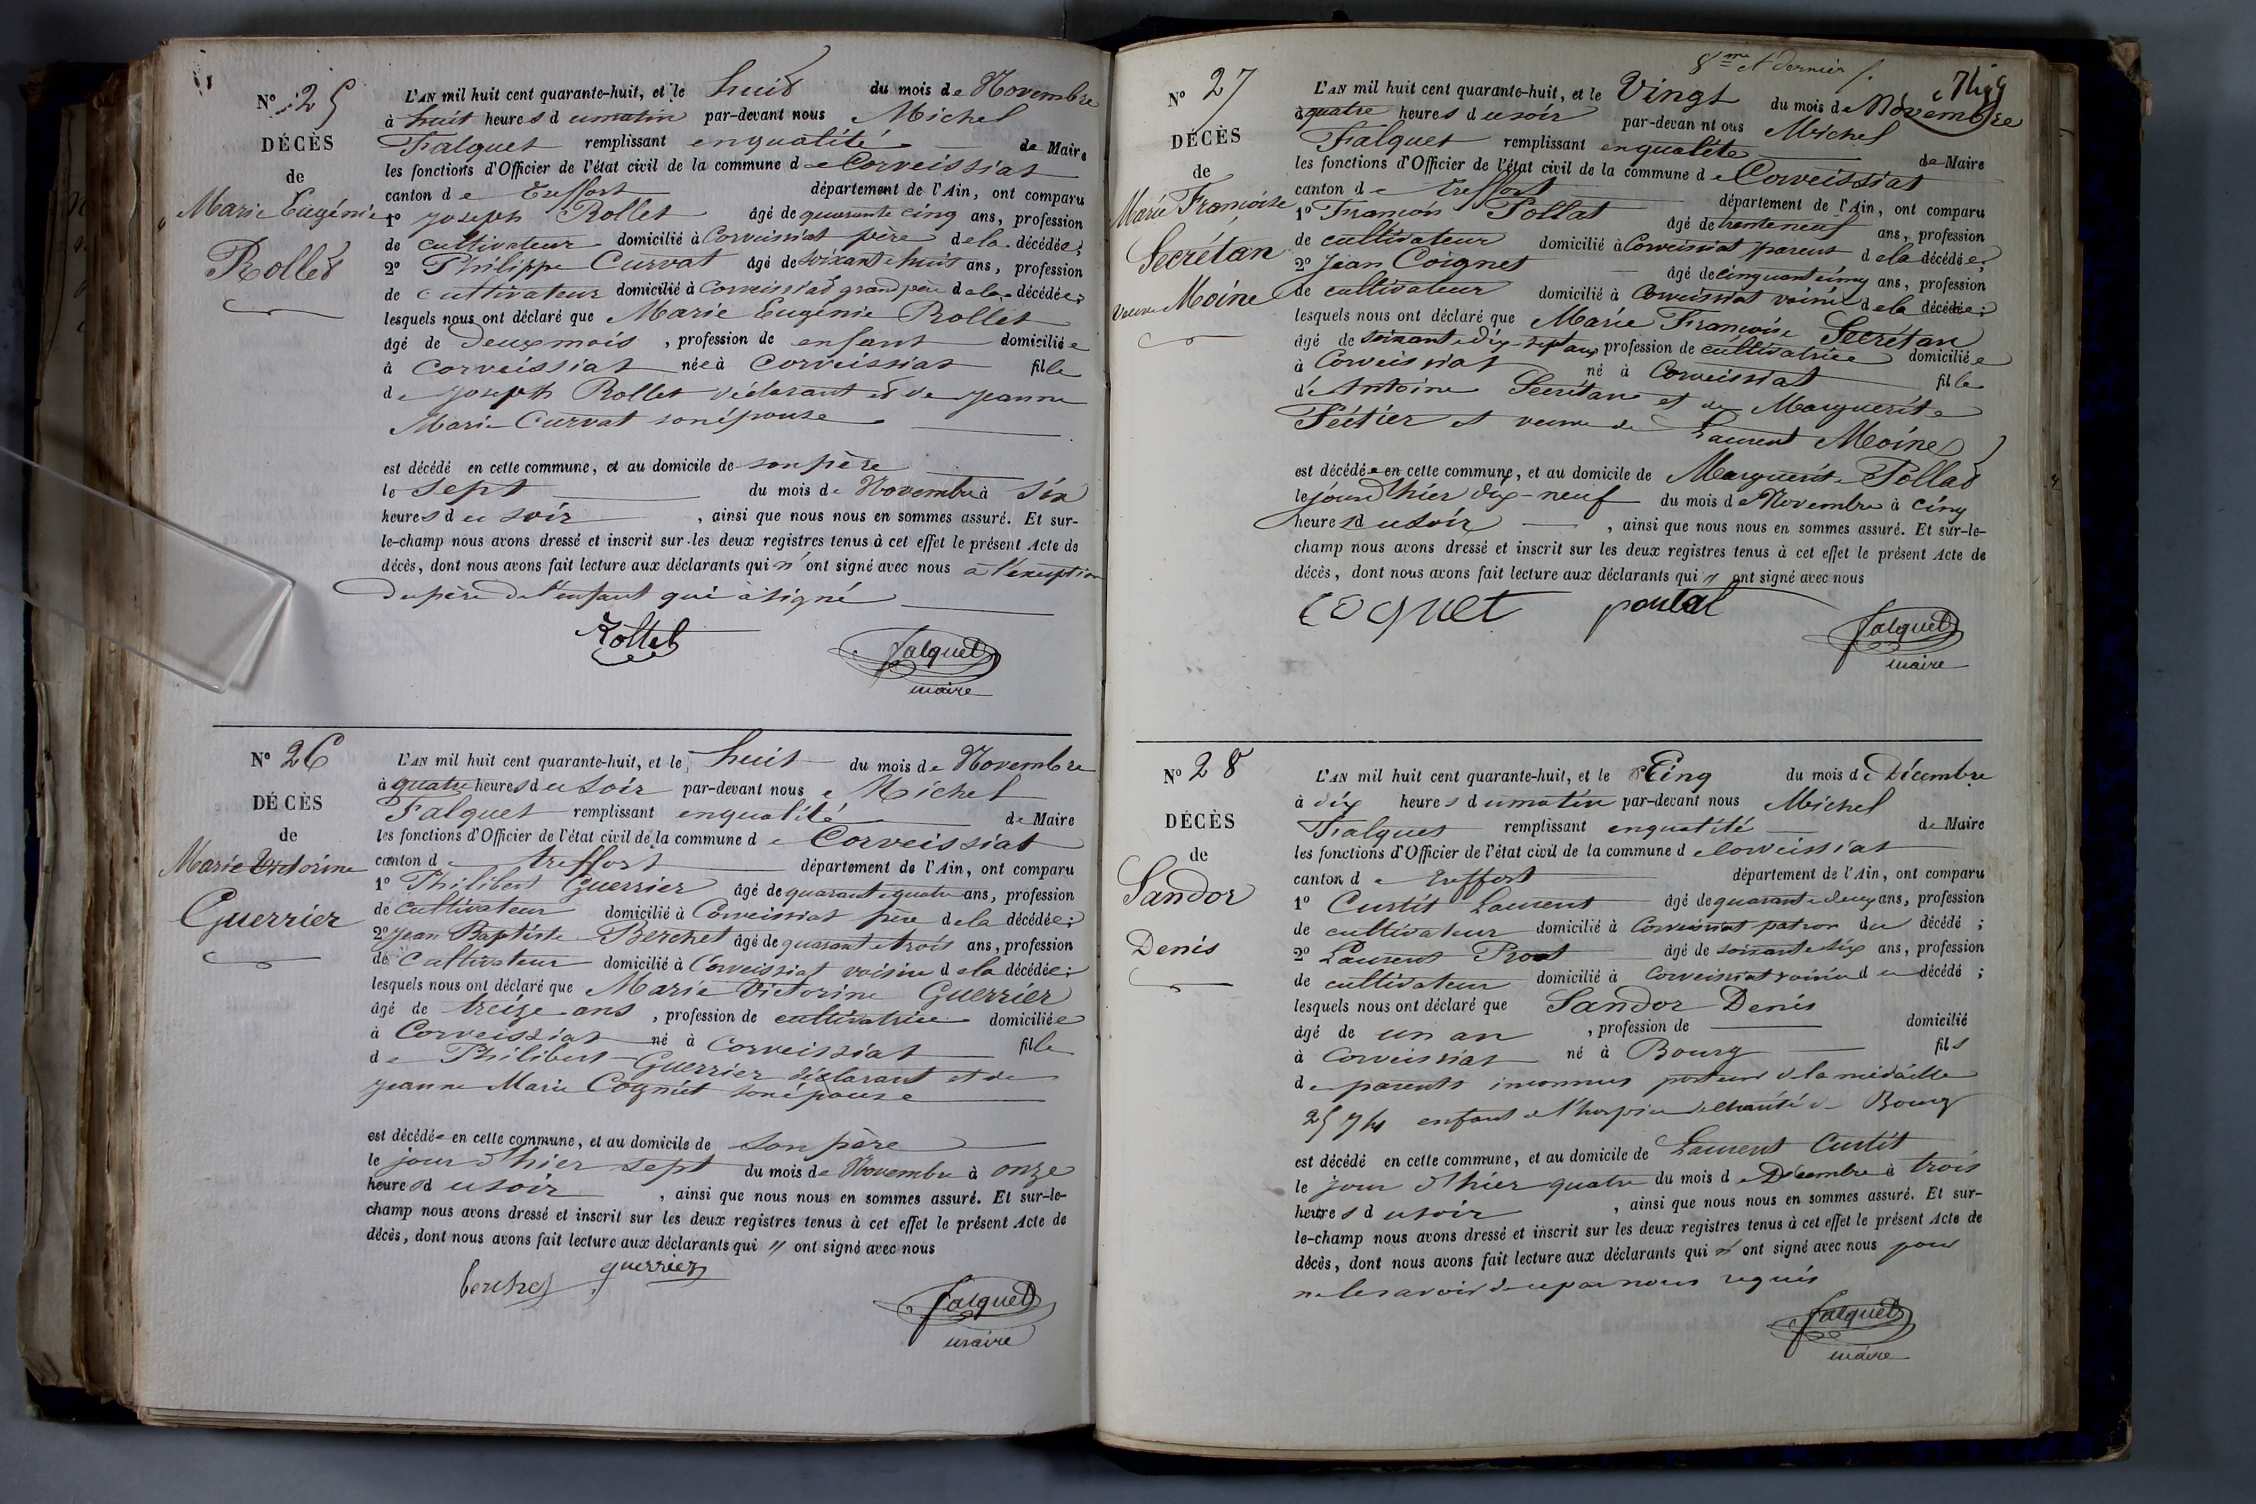 N° 25
DÉCÈS
de
Marie Eugénie
Rollet
L'AN mil huit cent quarante-huit, et le huit du mois de Novembre
à huit heures du matin par-devant nous Michel
Falquet remplissant en qualité de Maire
les fonctions d'Officier de l'état civil de la commune de Corveissiat
canton de Treffort département de l'Ain, ont comparu
1° Joseph Rollet âgé de quarante cinq ans, profession
de cultivateur domicilié à Corveissiat père de la décédée;
2° Philippe Curvat âgé de soixante huit ans, profession
de cultivateur domicilié à Corveissiat grand père de la décédée;
lesquels nous ont déclaré que Marie Eugénie Rollet
âgé de deux mois, profession de enfant domiciliée
à Corveissiat née à Corveissiat fille
de Joseph Rollet déclarant et de Jeanne
Marie Curvat son épouse
est décédé en cette commune, et au domicile de son père
le sept du mois de Novembre à six
heures du soir, ainsi que nous nous en sommes assuré. Et sur-
le-champ nous avons dressé et inscrit sur les deux registres tenus à cet effet le présent Acte de
décès, dont nous avons fait lecture aux déclarants qui n'ont signé avec nous à l'exception
du père de l'enfant qui à signé
Rollet
falquet
maire
N° 26
DÉCÈS
de
Marie Victorine
Guerrier
L'AN mil huit cent quarante-huit, et le huit du mois de Novembre
à quatre heures du soir par-devant nous Michel
Falquet remplissant en qualité de Maire
les fonctions d'Officier de l'état civil de la commune de Corveissiat
canton de treffort département de l'Ain, ont comparu
1° Philibert Guerrier âgé de quarante quatre ans, profession
de cultivateur domicilié à Corveissiat père de la décédée;
2° Jean Baptiste Berchet âgé de quarante trois ans, profession
de Cultivateur domicilié à Corveissiat voisin de la décédée;
lesquels nous ont déclaré que Marie Victorine Guerrier
âgé de treize ans, profession de cultivatrice domiciliée
à Corveissiat né à Corveissiat fille
de Philibert Guerrier déclarant et de
Jeanne Marie Cognet son épouse
est décédée en cette commune, et au domicile de son père
le jour d'hier sept du mois de Novembre à onze
heures du soir, ainsi que nous nous en sommes assuré. Et sur-le-
champ nous avons dressé et inscrit sur les deux registres tenus à cet effet le présent Acte de
décès, dont nous avons fait lecture aux déclarants qui // ont signé avec nous
berchet guerrier
falquet
maire
8me et dernier f.
N° 27
DÉCÈS
de
Marie Françoise
Secrétan
veuve Moine
L'AN mil huit cent quarante-huit, et le Vingt du mois de Novembre
à quatre heures du soir par-devan nt ous Michel
Falquet remplissant en qualité de Maire
les fonctions d'Officier de l'état civil de la commune de Corveissiat
canton de treffort département de l'Ain, ont comparu
1° François Pollat âgé de trente neuf ans, profession
de cultivateur domicilié à Corveissiat parent de la décédée;
2° Jean Coignet âgé de cinquante cinq ans, profession
de cultivateur domicilié à Corveissiat voisin de la décédée;
lesquels nous ont déclaré que Marie Françoise Secrétan
âgé de soixante Dix-sept ans profession de cultivatrice domiciliée
à Corveissiat né à Corveissiat fille
de Antoine Secrétan et de Marguerite
Féétier et veuve de Laurent Moine
est décédée en cette commune, et au domicile de Marguerite Pollat
le jour d'hier dix-neuf du mois de Novembre à cinq
heures du soir, ainsi que nous nous en sommes assuré. Et sur-le-
champ nous avons dressé et inscrit sur les deux registres tenus à cet effet le présent Acte de
décès, dont nous avons fait lecture aux déclarants qui // ont signé avec nous
coquet
falquet
maire
N° 28
DÉCÈS
de
Sandor
Denis
L'AN mil huit cent quarante-huit, et le Cinq du mois de Décembre
à dix heures du matin par-devant nous Michel
Falquet remplissant en qualité de Maire
les fonctions d'Officier de l'état civil de la commune de Corveissiat
canton de treffort département de l'Ain, ont comparu
1° Curtit Laurent âgé de quarante deux ans, profession
de cultivateur domicilié à Corveissiat patron du décédé;
2° Laurent Prost âgé de soixante dix ans, profession
de cultivateur domicilié à Corveissiat voisin du décédé;
lesquels nous ont déclaré que Sandor Denis
âgé de un an, profession de domicilié
à Corveissiat né à Bourg fils
de parents inconnus porteur de la médaille
2574 enfant de l'hospice de charité de Bourg
est décédé en cette commune, et au domicile de Laurent Curtit
le jour d'hier quatre du mois de Décembre à trois
heures du soir, ainsi que nous nous en sommes assuré. Et sur-
le-champ nous avons dressé et inscrit sur les deux registres tenus à cet effet le présent Acte de
décès, dont nous avons fait lecture aux déclarants qui n'ont signé avec nous pour
ne le savoir de ce par nous requis
falquet
maire